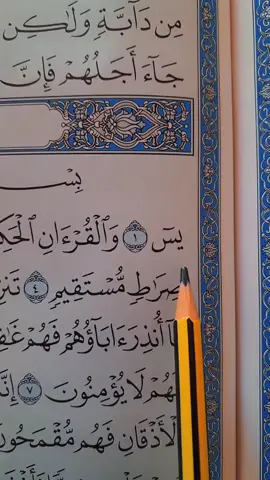 مِن دَآبَّةٍ وَلَٰكِن
جَآءَ أَجَلُهُمْ فَإِنَّ
بِسْـ
يسٓ ١ وَٱلْقُرْءَانِ ٱلْحَكِـ
صِرَٰطٍ مُّسْتَقِيمٍ ٤ تَنزِ
أُنذِرَ ءَابَآؤُهُمْ فَهُمْ غَٰفِـ
فَهُمْ لَا يُؤْمِنُونَ ٧ إِنَّـ
ٱلْأَذْقَانِ فَهُم مُّقْمَحُونَ